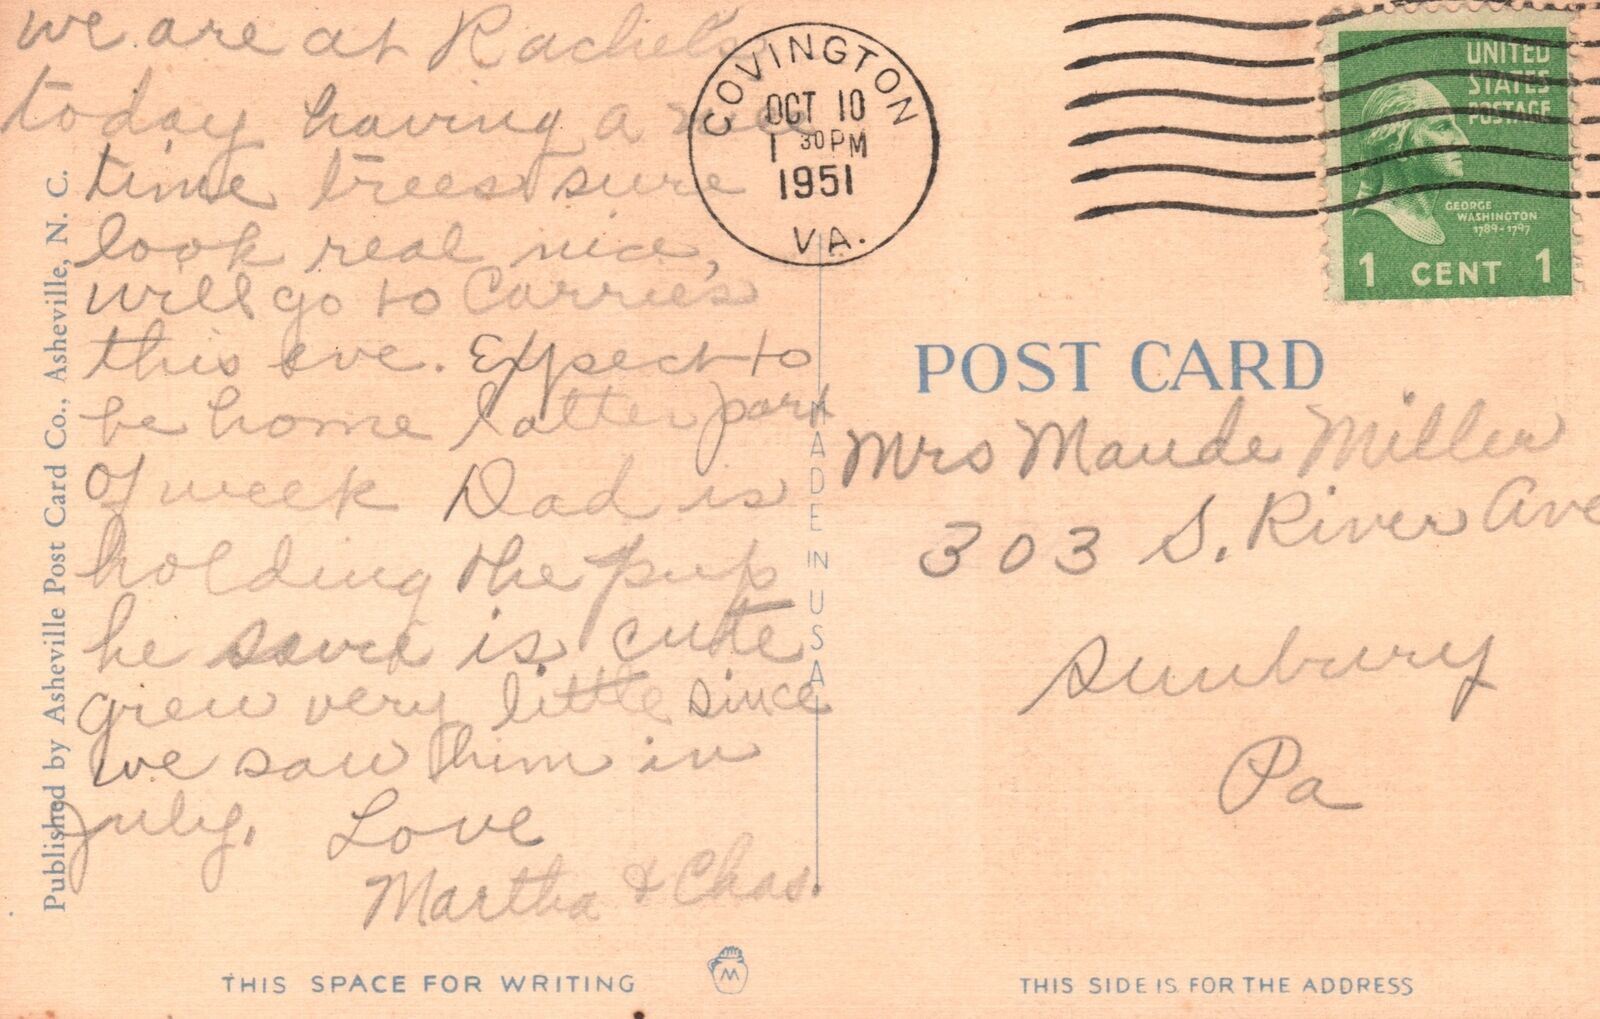 we are at Rachel's
today having a nice
time trees sure
look real nice,
will go to Carrie's
this eve. Expect to
be home latter part
of week Dad is
holding the pup
he is cute
grew very little since
we saw him in
July. Love
Martha & Chas.
COVINGTON
OCT 10
1 30 PM
1951
VA.
UNITED
STATES
POSTAGE
GEORGE
WASHINGTON
1789-1797
1 CENT 1
POST CARD
Mrs Maude Miller
303 S. River Ave
Sunbury
Pa
Published by Asheville Post Card Co., Asheville, N. C.
MADE IN USA
THIS SPACE FOR WRITING
M
THIS SIDE IS FOR THE ADDRESS